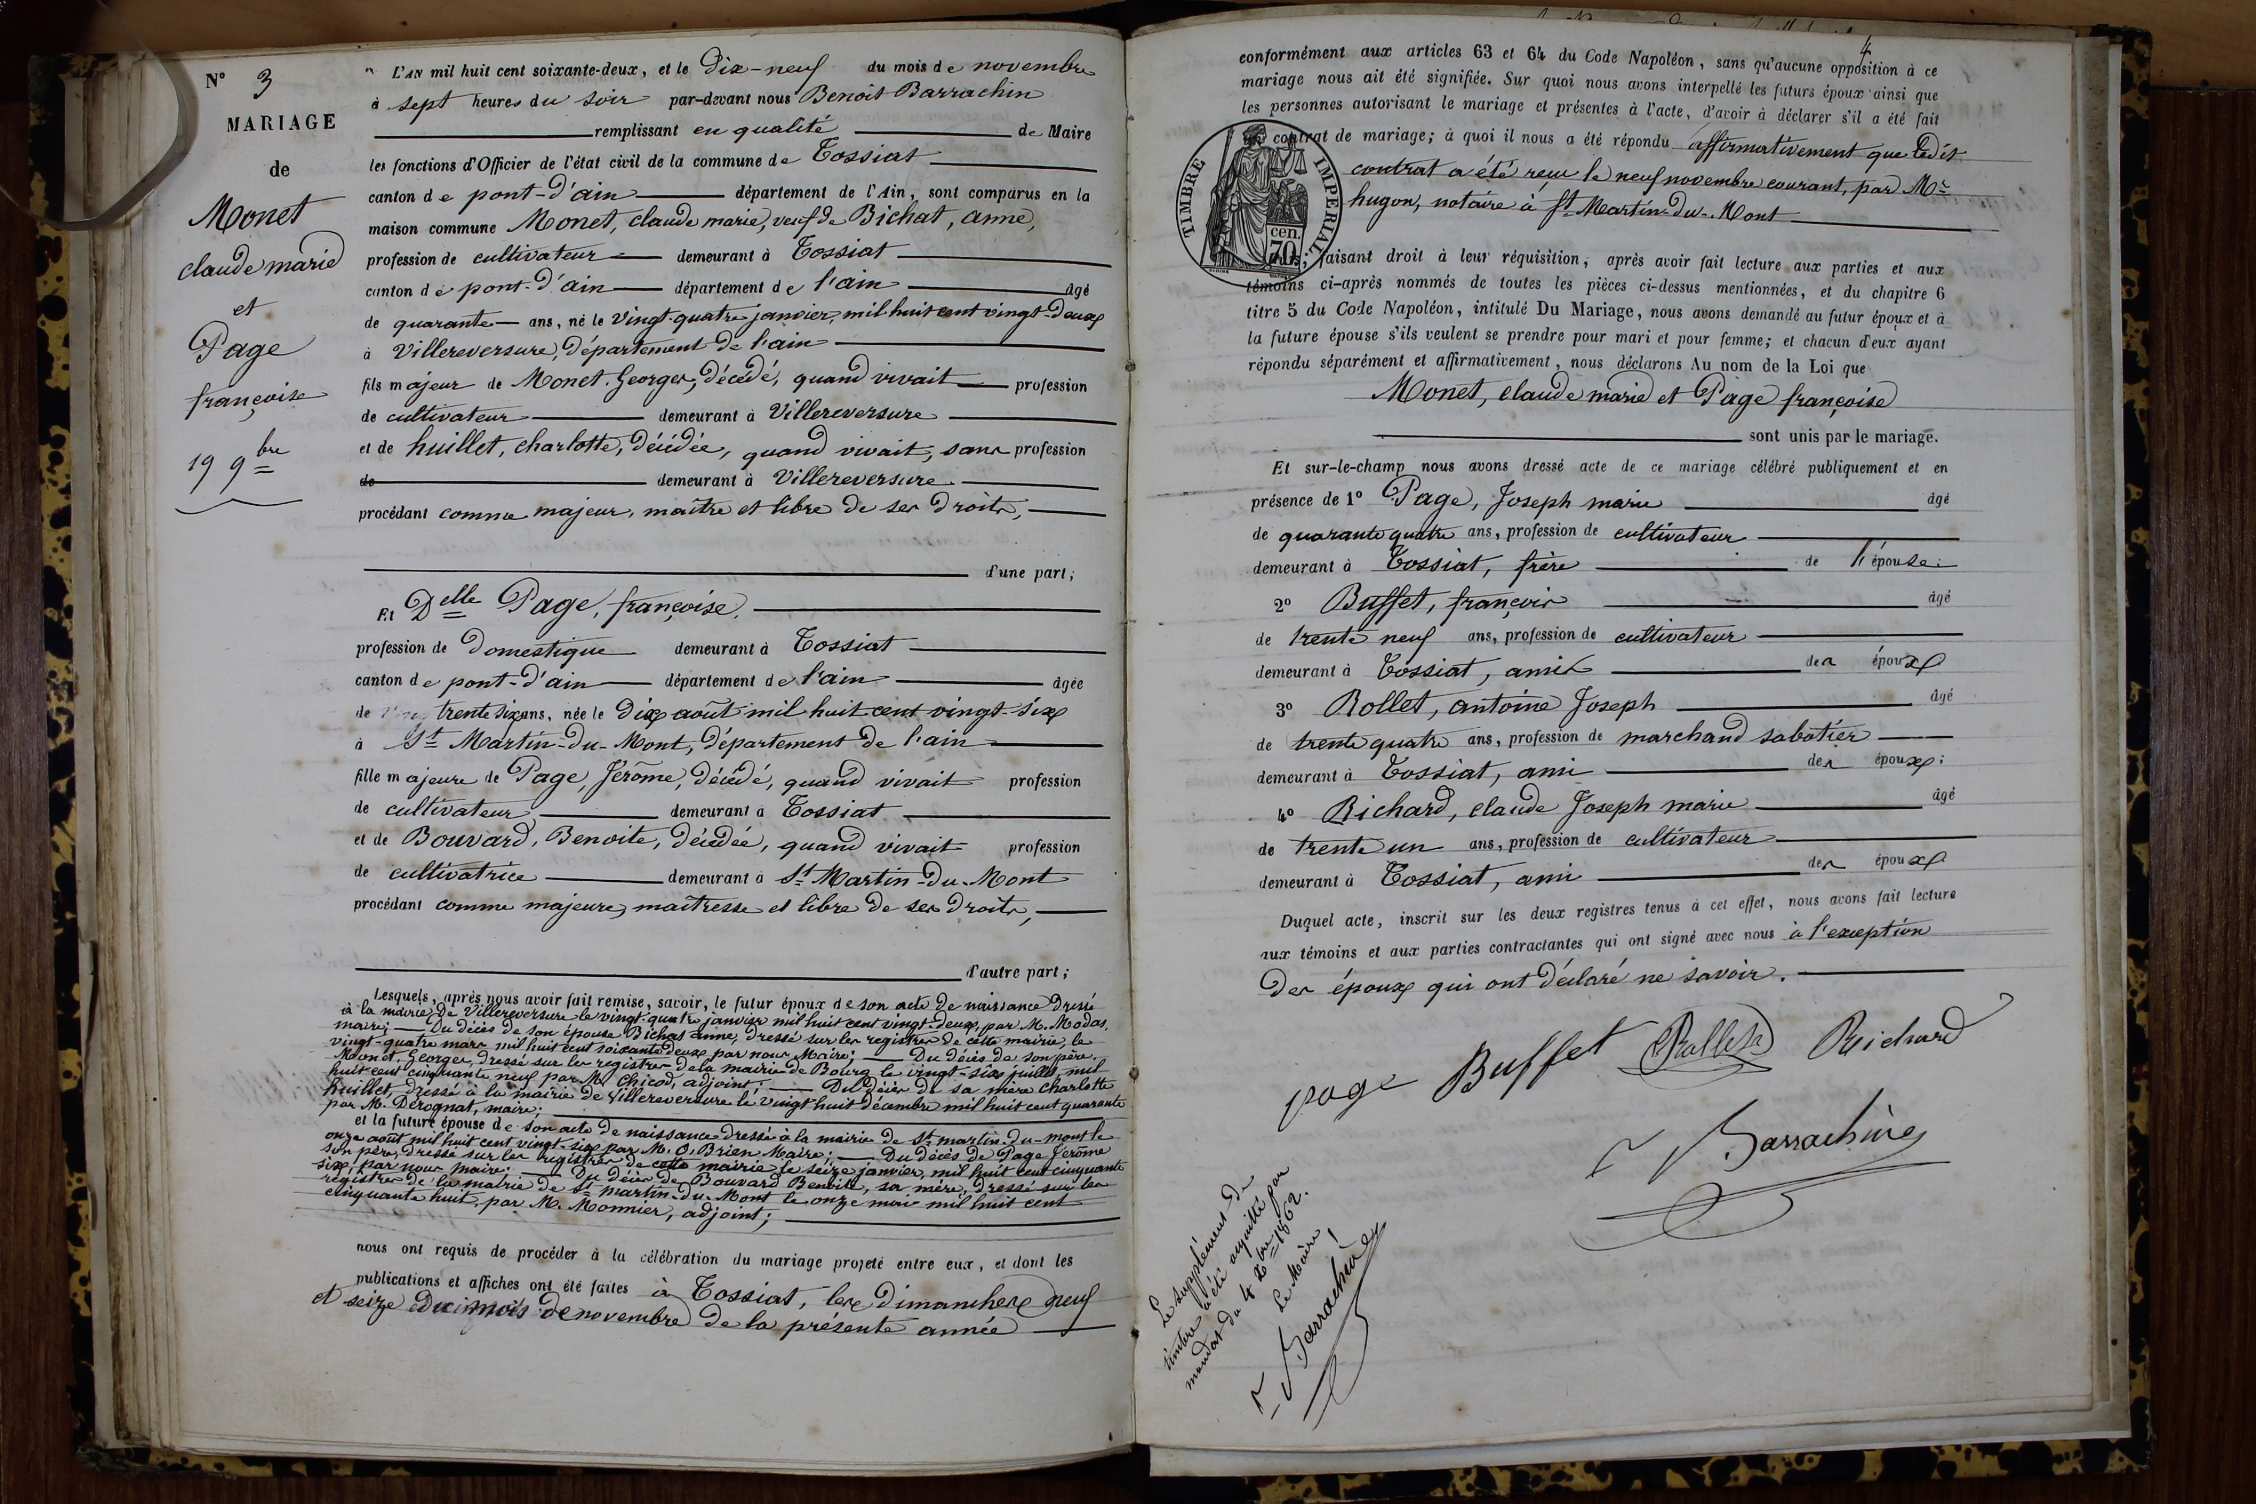 N° 3
MARIAGE
de
Monet
claude marie
et
Page
françoise
19 9bre
L'AN mil huit cent soixante-deux, et le dix-neuf du mois de novembre
à sept heures du soir par-devant nous Benoit Barrachin
remplissant en qualité de Maire
les fonctions d'Officier de l'état civil de la commune de Tossiat
canton de pont-d'ain département de l'Ain, sont comparus en la
maison commune Monet, claude marie, veuf de Bichat, anne,
profession de cultivateur demeurant à Tossiat
canton de pont-d'ain département de l'ain âgé
de quarante ans, né le vingt-quatre janvier, mil huit cent vingt-deux
à Villereversure, département de l'ain
fils majeur de Monet, Georges, décédé, quand vivait profession
de cultivateur demeurant à Villereversure
et de huillet, charlotte, décédée, quand vivait, sans profession
de demeurant à Villereversure
procédant comme majeur, maître et libre de ses droits,
d'une part;
Et Delle Page, françoise.
profession de domestique demeurant à Tossiat
canton de pont-d'ain département de l'ain âgée
de trente six ans, née le dix août mil huit cent vingt-six
à St Martin-du-Mont, département de l'ain
fille majeure de Page, Jérôme, décédé, quand vivait profession
de cultivateur demeurant à Tossiat
et de Bouvard, Benoite, décédée, quand vivait profession
de cultivatrice demeurant à St Martin-du-Mont
procédant comme majeure, maîtresse et libre de ses droits,
d'autre part;
Lesquels, après nous avoir fait remise, savoir, le futur époux de son acte de naissance dressé
à la mairie de Villereversure le vingt-quatre janvier mil huit cent vingt-deux, par M. Modas,
maire; Du décès de son épouse Bichat anne, dressé sur les registres de cette mairie, le
vingt-quatre mars mil huit cent soixante deux par nous Maire; Du décès de son père,
Monet, Georges, dressé sur les registres de la mairie de Bourg le vingt-six juillet, mil
huit cent cinquante neuf par M. Chicod, adjoint; Du décès de sa mère Charlotte
huillet, dressé à la mairie de Villereversure le vingt huit décembre mil huit cent quarante
par M. Dérognat, maire;
et la future épouse de son acte de naissance dressé à la mairie de St martin-du-mont le
onze août mil huit cent vingt-six par M. O, Brien Maire; Du décès de Page Jérôme
son père, dressé sur les registres de cette mairie le seize janvier, mil huit cent cinquante
six, par nous maire. Du décès de Bouvard Benoite, sa mère, dressé sur les
registres de la mairie de St martin-du-Mont le onze mai mil huit cent
cinquante huit, par M. Monnier, adjoint;
nous ont requis de procéder à la célébration du mariage projeté entre eux, et dont les
publications et affiches ont été faites à Tossiat, les dimanches neuf
et seize du mois de novembre de la présente année
4
conformément aux articles 63 et 64 du Code Napoléon, sans qu'aucune opposition à ce
mariage nous ait été signifiée. Sur quoi nous avons interpellé les futurs époux ainsi que
les personnes autorisant le mariage et présentes à l'acte, d'avoir à déclarer s'il a été fait
contrat de mariage; à quoi il nous a été répondu affirmativement que ledit
contrat a été reçu le neuf novembre courant, par Me
hugon, notaire à St Martin-du-Mont
TIMBRE IMPERIAL
70 cen.
faisant droit à leur réquisition, après avoir fait lecture aux parties et aux
témoins ci-après nommés de toutes les pièces ci-dessus mentionnées, et du chapitre 6
titre 5 du Code Napoléon, intitulé Du Mariage, nous avons demandé au futur époux et à
la future épouse s'ils veulent se prendre pour mari et pour femme; et chacun d'eux ayant
répondu séparément et affirmativement, nous déclarons Au nom de la Loi que
Monet, claude marie et Page françoise
sont unis par le mariage.
Et sur-le-champ nous avons dressé acte de ce mariage célébré publiquement et en
présence de 1° Page, Joseph marie âgé
de quarante quatre ans, profession de cultivateur
demeurant à Tossiat, frère de l'épouse.
2° Buffet, françois âgé
de trente neuf ans, profession de cultivateur
demeurant à Tossiat, ami des époux
3° Rollet, antoine Joseph âgé
de trente quatre ans, profession de marchand sabotier
demeurant à Tossiat, ami des époux;
4° Richard, claude Joseph marie âgé
de trente un ans, profession de cultivateur
demeurant à Tossiat, ami des époux
Duquel acte, inscrit sur les deux registres tenus à cet effet, nous avons fait lecture
aux témoins et aux parties contractantes qui ont signé avec nous à l'exception
des époux qui ont déclaré ne savoir.
page Buffet Rollet Richard
Barrachin
Le supplément de
timbre a été acquitté par
mandat du 4 Xbre 1862.
Le Maire
Barrachin